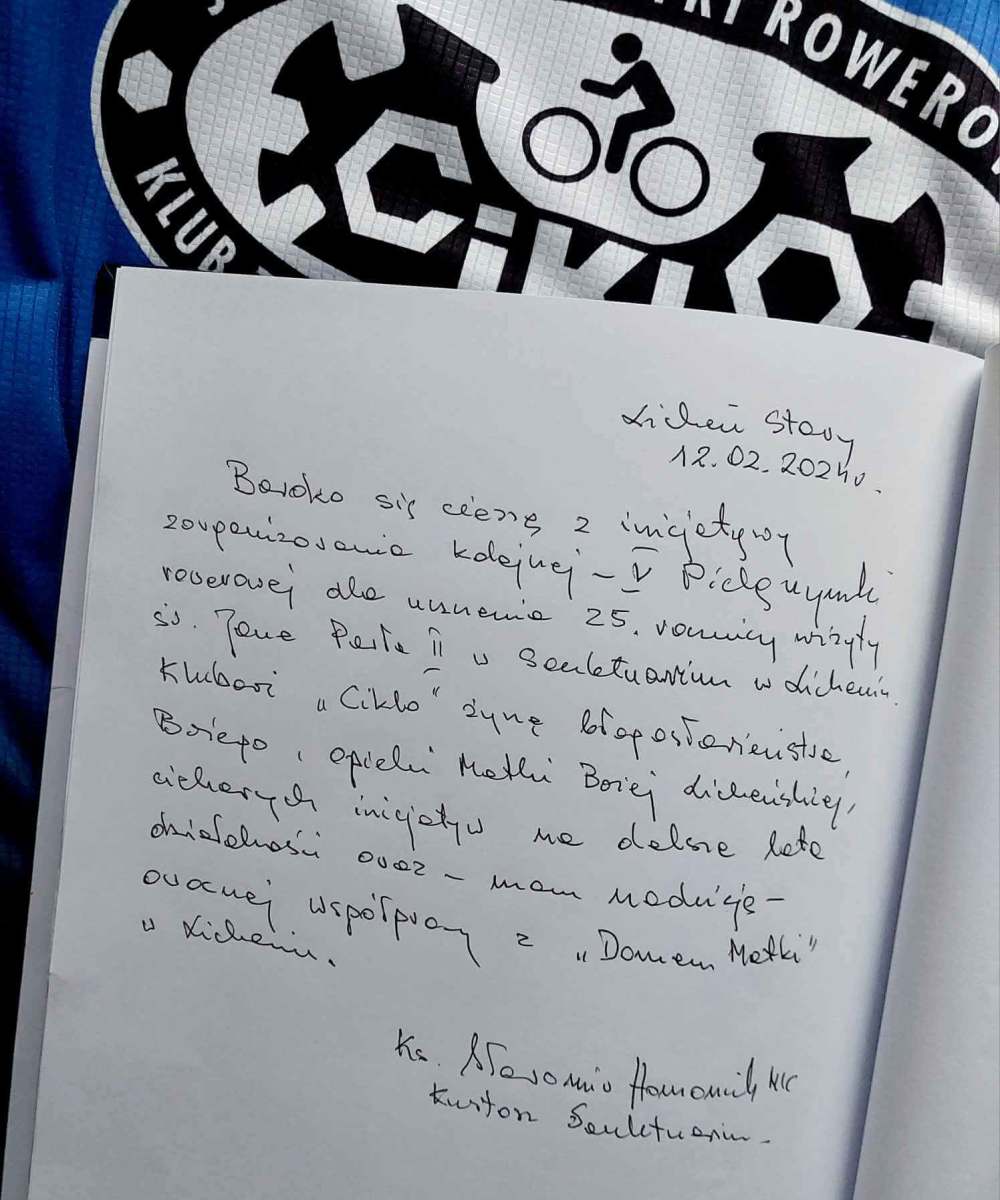 KI ROWERO
KLUB
CiKLO
Licheń Stary
12.02.2024 r.
Bardzo się cieszę z inicjatywy
zorganizowania kolejnej – V Pielgrzymki
rowerowej dla uczczenia 25. rocznicy wizyty
św. Jana Pawła II w Sanktuarium w Licheniu.
Klubowi „Ciklo" życzę błogosławieństwa
Bożego, opieki Matki Bożej Licheńskiej,
ciekawych inicjatyw na dalsze lata
działalności oraz – mam nadzieję –
owocnej współpracy z „Domem Matki"
w Licheniu.
Ks. Sławomir Homoncik MIC
Kustosz Sanktuarium.